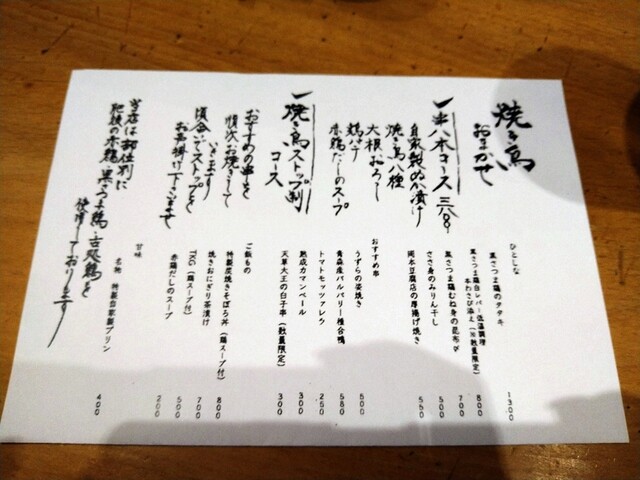 焼き鳥
おまかせ
一、串八本コース 三八〇〇
自家製ぬか漬け
焼き鳥八種
大根おろし
鶏パテ
赤鶏だしのスープ
一、焼き鳥ストップ制
コース
おすすめの串を
順次お焼きして
いきます
頃合いでストップと
お声掛け下さいませ
当店は部位別に
肥後の赤鶏・黒さつま鶏・古処鶏を
使用しております
ひとしな
黒さつま鶏のタタキ 1300
黒さつま鶏白レバー低温調理
本わさび添え(※数量限定) 800
黒さつま鶏むね身の昆布〆 700
ささ身のみりん干し 500
岡本豆腐店の厚揚げ焼き 550
おすすめ串
うずらの姿焼き 500
青森産バルバリー種合鴨 550
トマトモッツァレラ 250
熟成カマンベール 300
天草大王の白子串(数量限定) 300
ご飯もの
特製炭焼きそぼろ丼(鶏スープ付) 800
焼きおにぎり茶漬け 700
TKG(鶏スープ付) 500
赤鶏だしのスープ 200
甘味
名物 特製自家製プリン 400